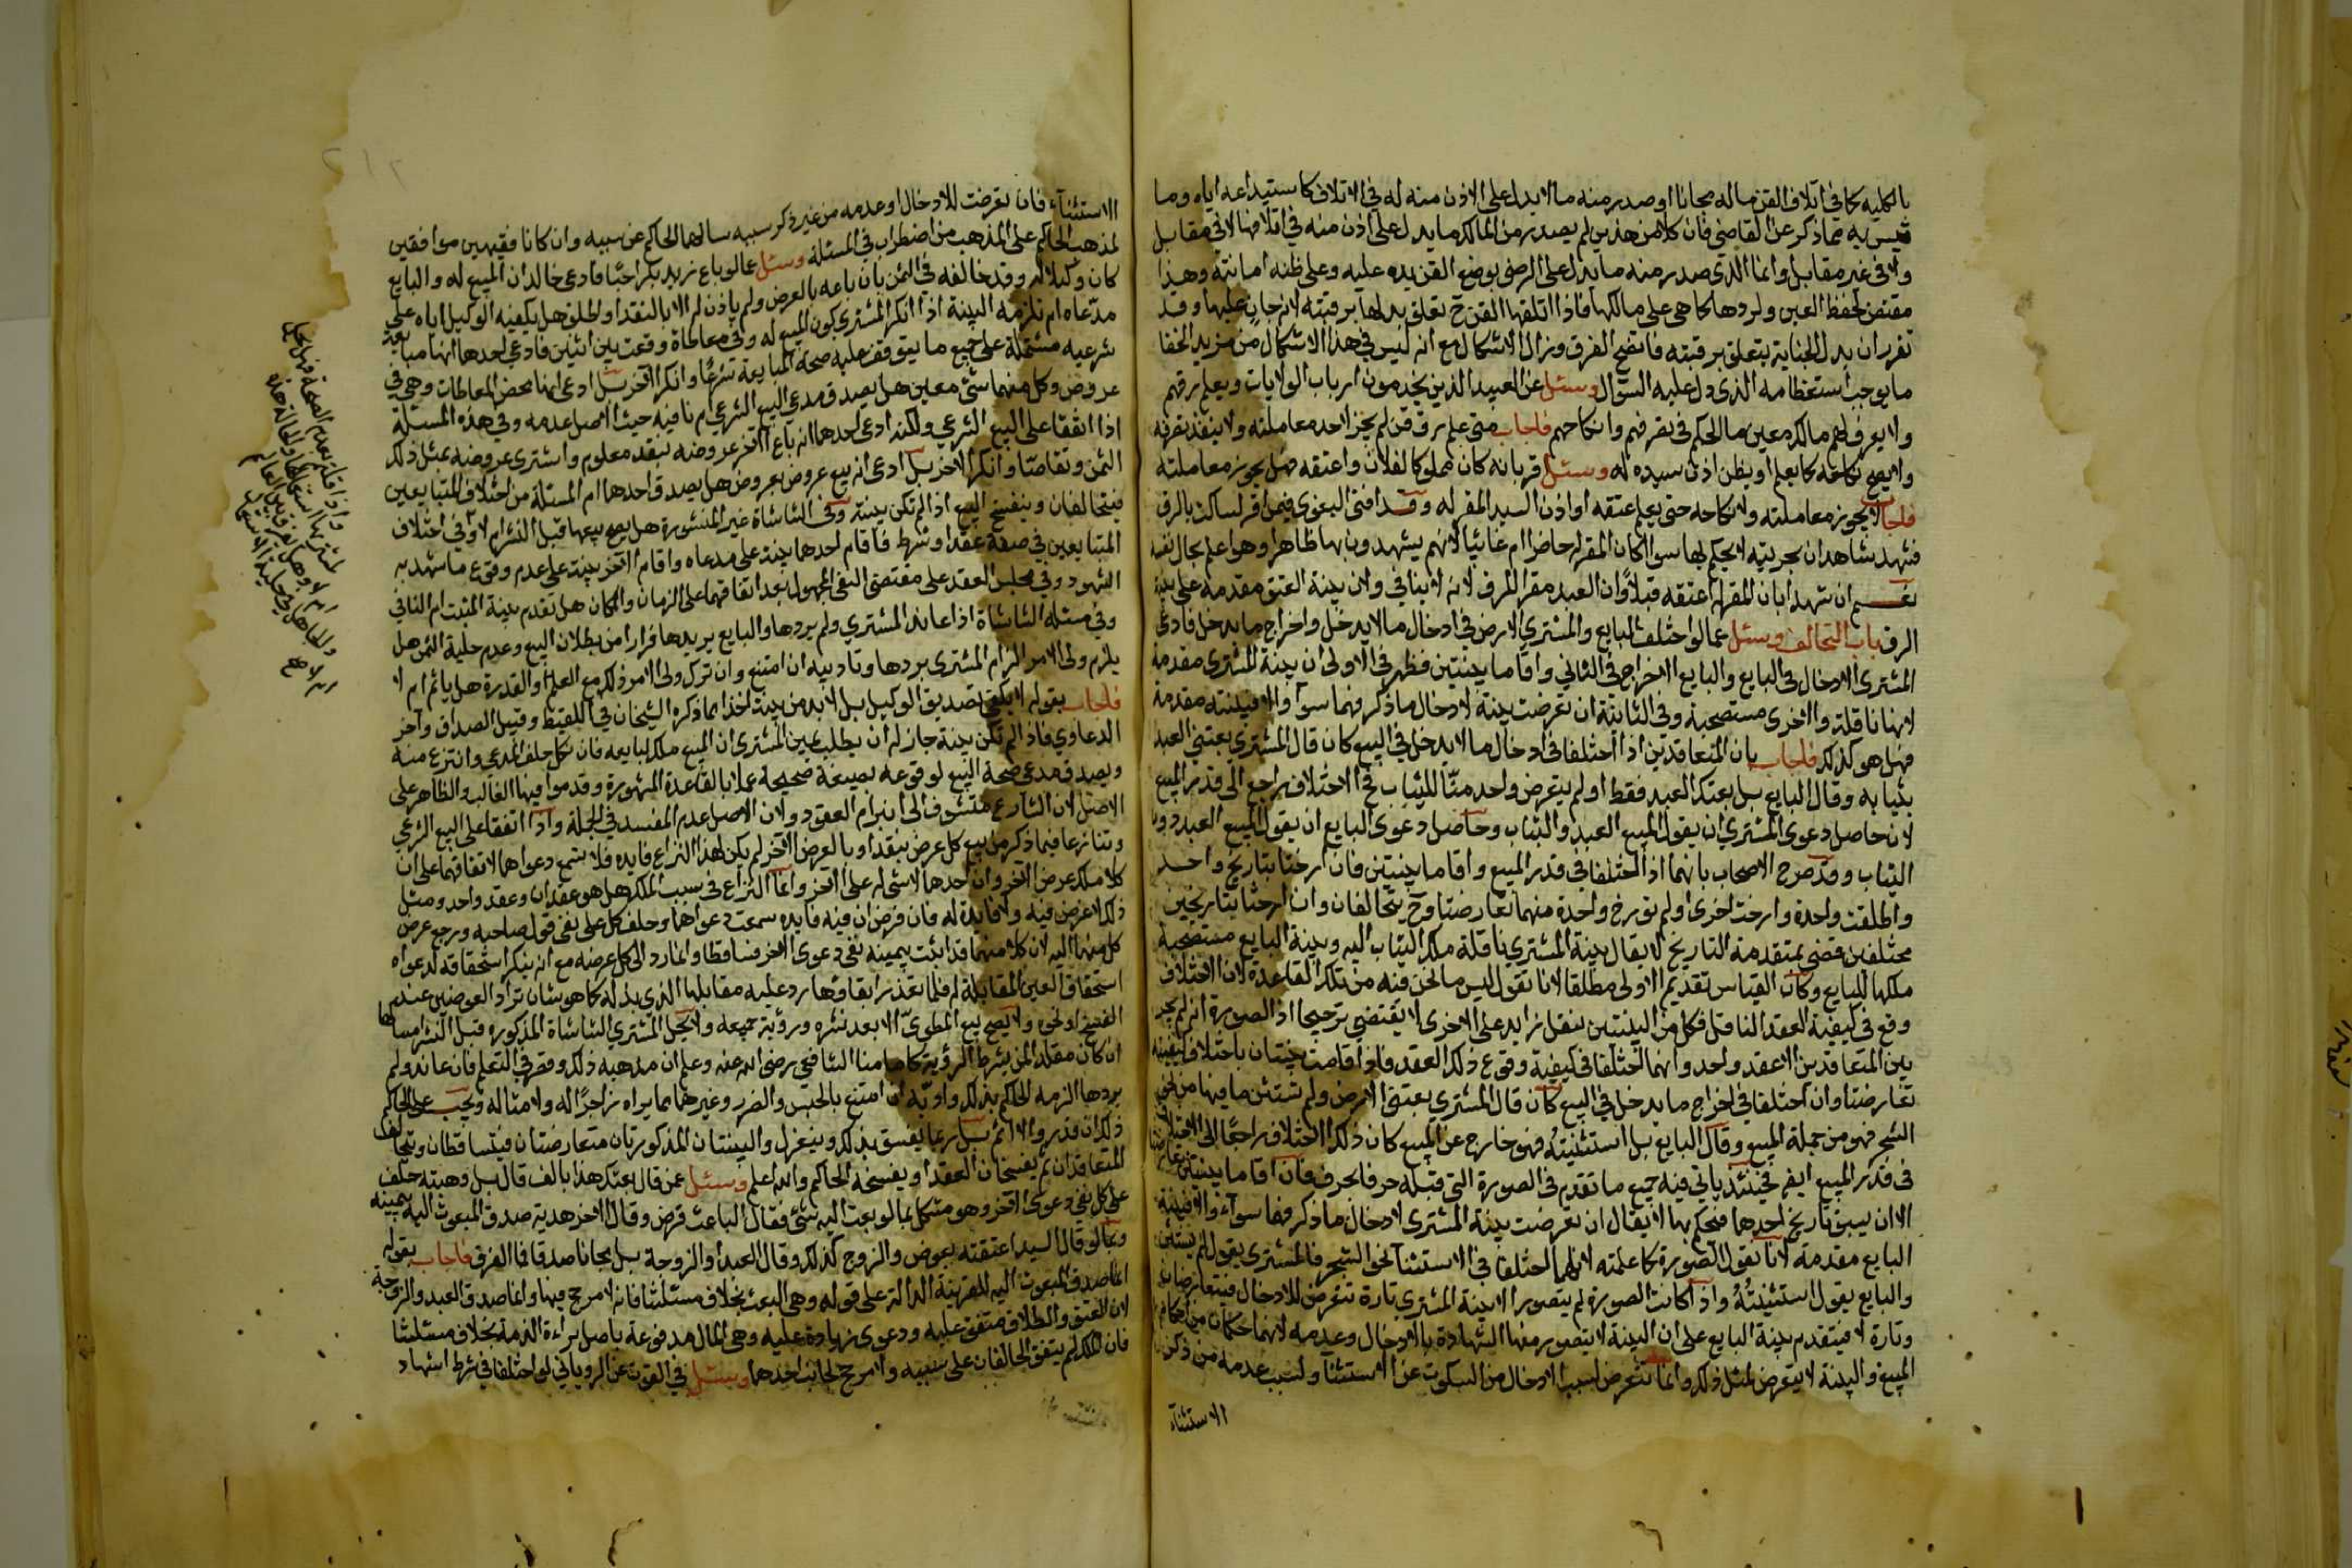 بالكليه كما في اتلاف القن ماله مجانا او صدر منه ما لا يدل على الاذن منه له في الاتلاف كاستيداعه اياه وما
قيس به مما ذكر عن القاضي فان كلا من هذين لم يصدر من المالك ما يدل على اذن منه في اتلافها لا في مقابل
ولا في غير مقابل وانما الذي صدر منه ما يدل على الرضى بوضع القن يده عليه وعلى ظنه امانته وهذا
مقتض لحفظ العين ولردها كما هي على مالكها فاذا اتلفها القن ح تعلق بدلها برقبته لانه جان عليها وقد
تقرر ان بدل الجناية يتعلق برقبته فاتضح الفرق وزال الاشكال مع انه ليس في هذا الاشكال من مزيد الخفا
ما يوجب استعظامه الذي دل عليه السؤال وسئل عن العبيد الذين يخدمون ارباب الولايات ويعلم رقهم
ولا يعرف لهم مالك معين ما الحكم في تصرفهم وانكاحهم فاجاب متى علم رق قن لم يجز لاحد معاملته ولا ينفذ تصرفه
ولا يصح نكاحه كما يعلم او يظن اذن سيده له وسئل قر بانه كان مملوكا لفلان واعتقه هل يجوز معاملته
فاجاب لا يجوز معاملته ولا نكاحه حتى يعلم عتقه او اذن السيد المقر له وقد افتى البغوي فيمن اقر لساكت بالرق
فشهد شاهدان بحريته لا يحكم بها سوا كان المقر له حاضرا ام غائبا لانهم يشهدون بها ظاهرا وهو اعلم بحال نفسه
نعم ان شهدا بان المقر له اعتقه قبلا وان العبد مقرا بالرق لانه لا ينافي ولان بينة العتق مقدمة على بينة
الرق باب التحالف وسئل عما لو اختلف البايع والمشتري الارض في ادخال ما لا يدخل واخراج ما يدخل فادعى
المشتري الادخال في البايع والبايع الاخراج في الثاني واقاما بينتين فظهر في الاولى ان بينة المشتري مقدمة
لانها ناقلة والاخرى مستصحبة وفي الثانية ان تعرضت بينة لادخال ما ذكر فهما سوآ والا فبينته مقدمة
فهل هو كذلك فاجاب بان المتعاقدين اذا اختلفا في ادخال ما لا يدخل في البيع كان قال المشتري بعتني العبد
بثيابه وقال البايع بل بعتك العبد فقط او لم يتعرض واحد منا للثياب فح الاختلاف راجع الى قدر المبيع
لان حاصل دعوى المشتري ان يقول المبيع العبد والثياب وحاصل دعوى البايع ان يقول المبيع العبد دون
الثياب وقد صرح الاصحاب بانهما اذا اختلفا في قدر المبيع واقاما بينتين فان ارختا بتاريخ واحد
واطلقت واحدة وارخت اخرى او لم تورخ واحدة منهما تعارضتا وح يتحالفان وان ارختا بتاريخين
مختلفين قضي بمتقدمة التاريخ لا يقال بينة المشتري ناقلة ملك الثياب اليه وبينة البايع مستصحبة
ملكها للبايع وكان القياس تقديم الاولى مطلقا لانا نقول ليس ما نحن فيه من تلك القاعدة لان الاختلاف
وقع في كيفية العقد الناقل فكل من البينتين بنقل زايد على الاخرى لا يقتضي ترجيحا اذ الصورة انه لم يجر
بين المتعاقدين الا عقد واحد وانهما اختلفا في كيفية وقوع ذلك العقد فاذا قامت بينتان باختلاف كيفيته
تعارضتا وان اختلفا في اخراج ما يدخل في البيع كان قال المشتري بعتني الارض ولم تستثن ما فيها من نحو
الشجر فهو من جملة المبيع وقال البايع بل استثنيته فهو خارج عن المبيع كان ذلك الاختلاف راجعا الى الاختلاف
في قدر المبيع ايضا فحينئذ ياتي فيه جميع ما تقدم في الصورة التي قبله حرفا بحرف فان اقاما بينتين تعارضتا
الا ان يسبق تاريخ احدهما فيحكم بها لا يقال ان تعرضت بينة المشتري لادخال ما ذكر فهما سوآء والا فبينة
البايع مقدمة لانا نقول الصورة كما علمته لانهما اختلفا في الاستثنآ لنحو الشجر فالمشتري يقول لم يستثن
والبايع يقول استثنيته واذا كانت الصورة لم يتصور الا بينة المشتري تارة تتعرض للادخال فيتعارضان
وتارة لا فيتقدم بينة البايع على ان البينة لا يتصور منها الشهادة بالادخال وعدمه لانهما حكمان من احكام
المبيع والبينة لا يتعرض لمثل ذلك وانما تتعرض لسبب الادخال من السكوت عن الاستثنآ ولسبب عدمه من ذكر
الاستثنآء
الاستثنآء فان تعرضت للادخال او عدمه من غير ذكر سببه سالهما الحاكم عن سببه وان كانا فقيهين موافقين
لمذهب الحاكم على المذهب من اضطراب في المسئلة وسئل عما لو باع زيد بكرا حبا فادعى خالد ان المبيع له والبايع
كان وكيلا له وقد خالفه في الثمن بان باعه بالعرض ولم ياذن له الا بالنقد او اطلق هل يكفيه الوكيل اياه على
مدعاه ام تلزمه البينة اذا انكر المشتري كون المبيع له وفي معاطاة وقعت بين اثنين فادعى احدهما انها مبايعة
شرعيه مشتملة على جميع ما يتوقف عليه صحة المبايعة شرعا وانكر الاخر بل ادعى انها محض المعاطات وهي في
عروض وكل منهما شئ معين هل يصدق مدعي البيع الشرعي ام نافيه حيث الاصل عدمه وفي هذه المسئلة
اذا اتفقا على البيع الشرعي ولكنه ادعى احدهما انه باع الاخر عروضه بنقد معلوم واشترى عروضه بمثل ذلك
الثمن وتقاصا وانكر الاخر بل ادعى انه بيع عروض بعروض هل يصدق احدهما ام المسئلة من اختلاف المتبايعين
فيتحالفان وينفسخ البيع اذا لم تكن بينة وفي الشاشاة غير المنشورة هل يصح بيعها قبل النشر ام لا وفي اختلاف
المتبايعين في صفة عقد او شرط فاقام احدهما بينة على مدعاه واقام الاخر بينة على عدم وقوع ما شهد به
الشهود وفي مجلس العقد على مقتضى النفي المجهول بعد اتفاقهما على الزمان والمكان هل تقدم بينة المثبت ام النافي
وفي مسئلة الشاشاة اذا عاند المشتري ولم يردها والبايع يريدها فرارا من بطلان البيع وعدم حلية الثمن هل
يلزم ولي الامر الزام المشتري بردها وتاديبه ان امتنع وان ترك ولي الامر ذلك مع العلم والقدرة هل ياثم ام لا
فاجاب بقوله لا يكفي تصديق الوكيل بل لا بد من بينة اخذا مما ذكره الشيخان في اللقيط وقبيل الصداق وآخر
الدعاوي فاذا لم تكن بينة جاز له ان يطلب يمين المشتري ان المبيع ملك لبايعه فان نكل حلف المدعي وانتزع منه
ويصدق مدعي صحة البيع لوقوعه بصيغة صحيحة عملا بالقاعدة المشهورة وقدموا فيها الغالب والظاهر على
الاصل لان الشارع متشوف الى انبرام العقود ولان الاصل عدم المفسد في الجملة واذا اتفقا على البيع الشرعي
وتنازعا فيما ذكر من بيع كل عرض بنقد او بالعرض الاخر لم يكن لهذا النزاع فايده فلا يسمع دعواهما لاتفاقهما على ان
كلا ملك عرض الاخر وان احدهما لا شئ له على الاخر وانما النزاع في سبب الملك هل هو عقدان وعقد واحد ومثل
ذلك لا غرض فيه ولا فايدة له فان فرض ان فيه فايده سمعت دعواهما وحلف كل على نفي قول صاحبه ورجع عرض
كل منهما اليه لان كلا منهما قد اثبت بيمينه نفي دعوى الاخر فتساقطا وانما رد الى كل عرضه مع انه ينكر استحقاقه لدعواه
استحقاق العين المقابلة له فلما تعذر ابقاؤها رد عليه مقابلها الذي بذله كما هو شان تراد العوضين عند
الفسخ او نحوه ولا يصح بيع المطوي الا بعد نشره ورؤية جميعه ولا يحل للمشتري الشاشاة المذكورة قبل النشر امساكها
ان كان مقلدا لمن يشرط الرؤية كامامنا الشافعي رضي الله عنه وعلم ان مذهبه ذلك وقصر في التعلم فان عاند ولم
يردها الزمه الحاكم بذلك وادبه ان امتنع بالحبس والضرب وغيرهما مما يراه زاجرا له ولامثاله ويجب على الحاكم
ذلك ان قدر والا اثم بل ربما يفسق بذلك وينعزل والبينتان المذكورتان متعارضتان فيتساقطان ويتحالف
المتعاقدان ثم يفسخان العقد او يفسخه الحاكم والله اعلم وسئل عن قال بعتك هذا بالف قال بل وهبته حلف
على كل نفي دعوى الاخر وهو مشكل بما لو بعث اليه شئ فقال الباعث قرض وقال الاخر هدية صدق المبعوث اليه بيمينه
وبما لو قال السيد اعتقته بعوض والزوج كذلك وقال العبد او الزوجة بل مجانا صدقا فما الفرق فاجاب بقوله
انما صدق المبعوث اليه للقرينة الدالة على قوله وهي البعث بخلاف مسئلتنا فانه لا مرجح فيها وانما صدق العبد والزوجة
لان العتق والطلاق متفق عليه ودعوى زيادة عليه وهي المال مدفوعة باصل براءة الذمة بخلاف مسئلتنا
فان الملك لم يتفق الحالفان على سببه ولا مرجح لجانب احدهما وسئل في القوت عن الروياني لو اختلفا في شرط اشهاد